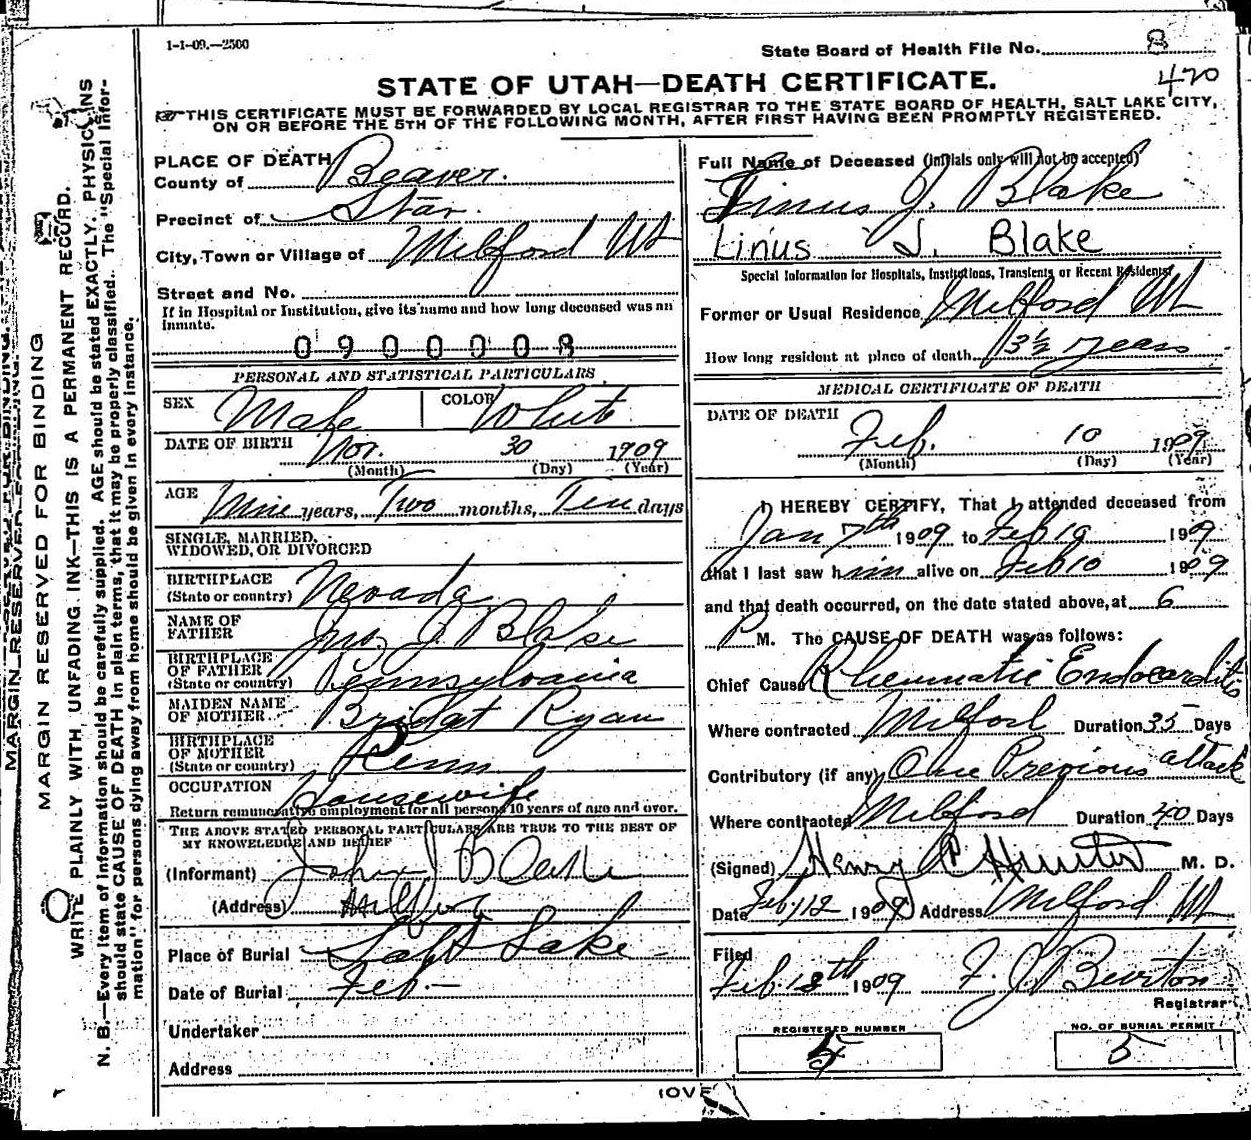 1-1-09.—2500
State Board of Health File No. 8
470
STATE OF UTAH—DEATH CERTIFICATE.
THIS CERTIFICATE MUST BE FORWARDED BY LOCAL REGISTRAR TO THE STATE BOARD OF HEALTH, SALT LAKE CITY,
ON OR BEFORE THE 5TH OF THE FOLLOWING MONTH, AFTER FIRST HAVING BEEN PROMPTLY REGISTERED.
MARGIN RESERVED FOR BINDING
MARGIN RESERVED FOR BINDING
WRITE PLAINLY WITH, UNFADING INK—THIS IS A PERMANENT RECORD.
N. B.—Every item of information should be carefully supplied. AGE should be stated EXACTLY. PHYSICIANS
should state CAUSE OF DEATH in plain terms, that it may be properly classified. The "Special Infor-
mation" for persons dying away from home should be given in every instance.
PLACE OF DEATH
County of Beaver.
Precinct of Star.
City, Town or Village of Milford Ut
Street and No.
If in Hospital or Institution, give its name and how long deceased was an
inmate.
0900008
PERSONAL AND STATISTICAL PARTICULARS
SEX Male COLOR White
DATE OF BIRTH Nov. 30 1909
(Month) (Day) (Year)
AGE Nine years, Two months, Ten days
SINGLE, MARRIED,
WIDOWED, OR DIVORCED
BIRTHPLACE
(State or country) Nevada
NAME OF
FATHER Jno. J. Blake
BIRTHPLACE
OF FATHER
(State or country) Pennsylvania
MAIDEN NAME
OF MOTHER Bridgat Ryan
BIRTHPLACE
OF MOTHER
(State or country) Penn
OCCUPATION Housewife
Return remunerative employment for all persons 10 years of age and over.
THE ABOVE STATED PERSONAL PARTICULARS ARE TRUE TO THE BEST OF
MY KNOWLEDGE AND BELIEF
(Informant) John J Blake
(Address) Milford
Place of Burial Salt Lake
Date of Burial Feb.—
Undertaker
Address
Full Name of Deceased (initials only will not be accepted)
Linus J. Blake
Linus J. Blake
Special Information for Hospitals, Institutions, Transients, or Recent Residents
Former or Usual Residence Milford Ut
How long resident at place of death 3½ years
MEDICAL CERTIFICATE OF DEATH
DATE OF DEATH
Feb. 10 1909
(Month) (Day) (Year)
I HEREBY CERTIFY, That I attended deceased from
Jan 7th 1909 to Feb 10 1909
that I last saw him alive on Feb 10 1909
and that death occurred, on the date stated above, at 6
P M. The CAUSE OF DEATH was as follows:
Chief Cause Rheumatic Endocarditis
Where contracted Milford Duration 35 Days
Contributory (if any) One Previous attack
Where contracted Milford Duration 40 Days
(Signed) Henry C Hunter M. D.
Date Feb 12 1909 Address Milford Ut
Filed
Feb. 18th 1909 F. J. Burton
Registrar
REGISTERED NUMBER
5
NO. OF BURIAL PERMIT
5